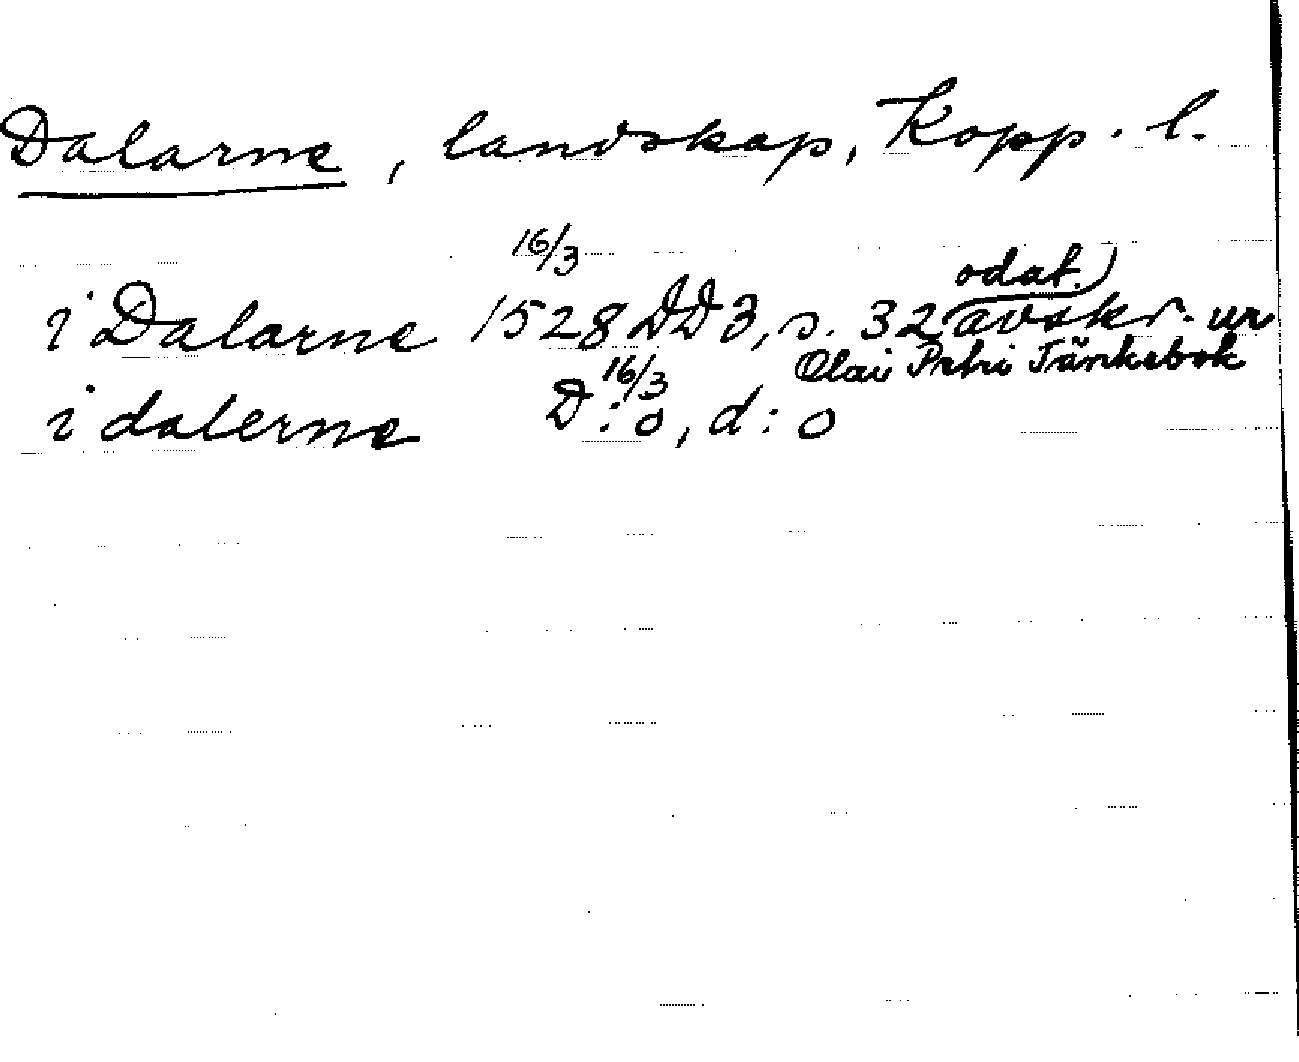 Dalarne, landskap, Kopp. l.
16/3
odat.)
i Dalarne 1528 DD 3, s. 32 avskr. ur
Olai Petri Tänkebok
16/3
i dalerne D:o, d:o